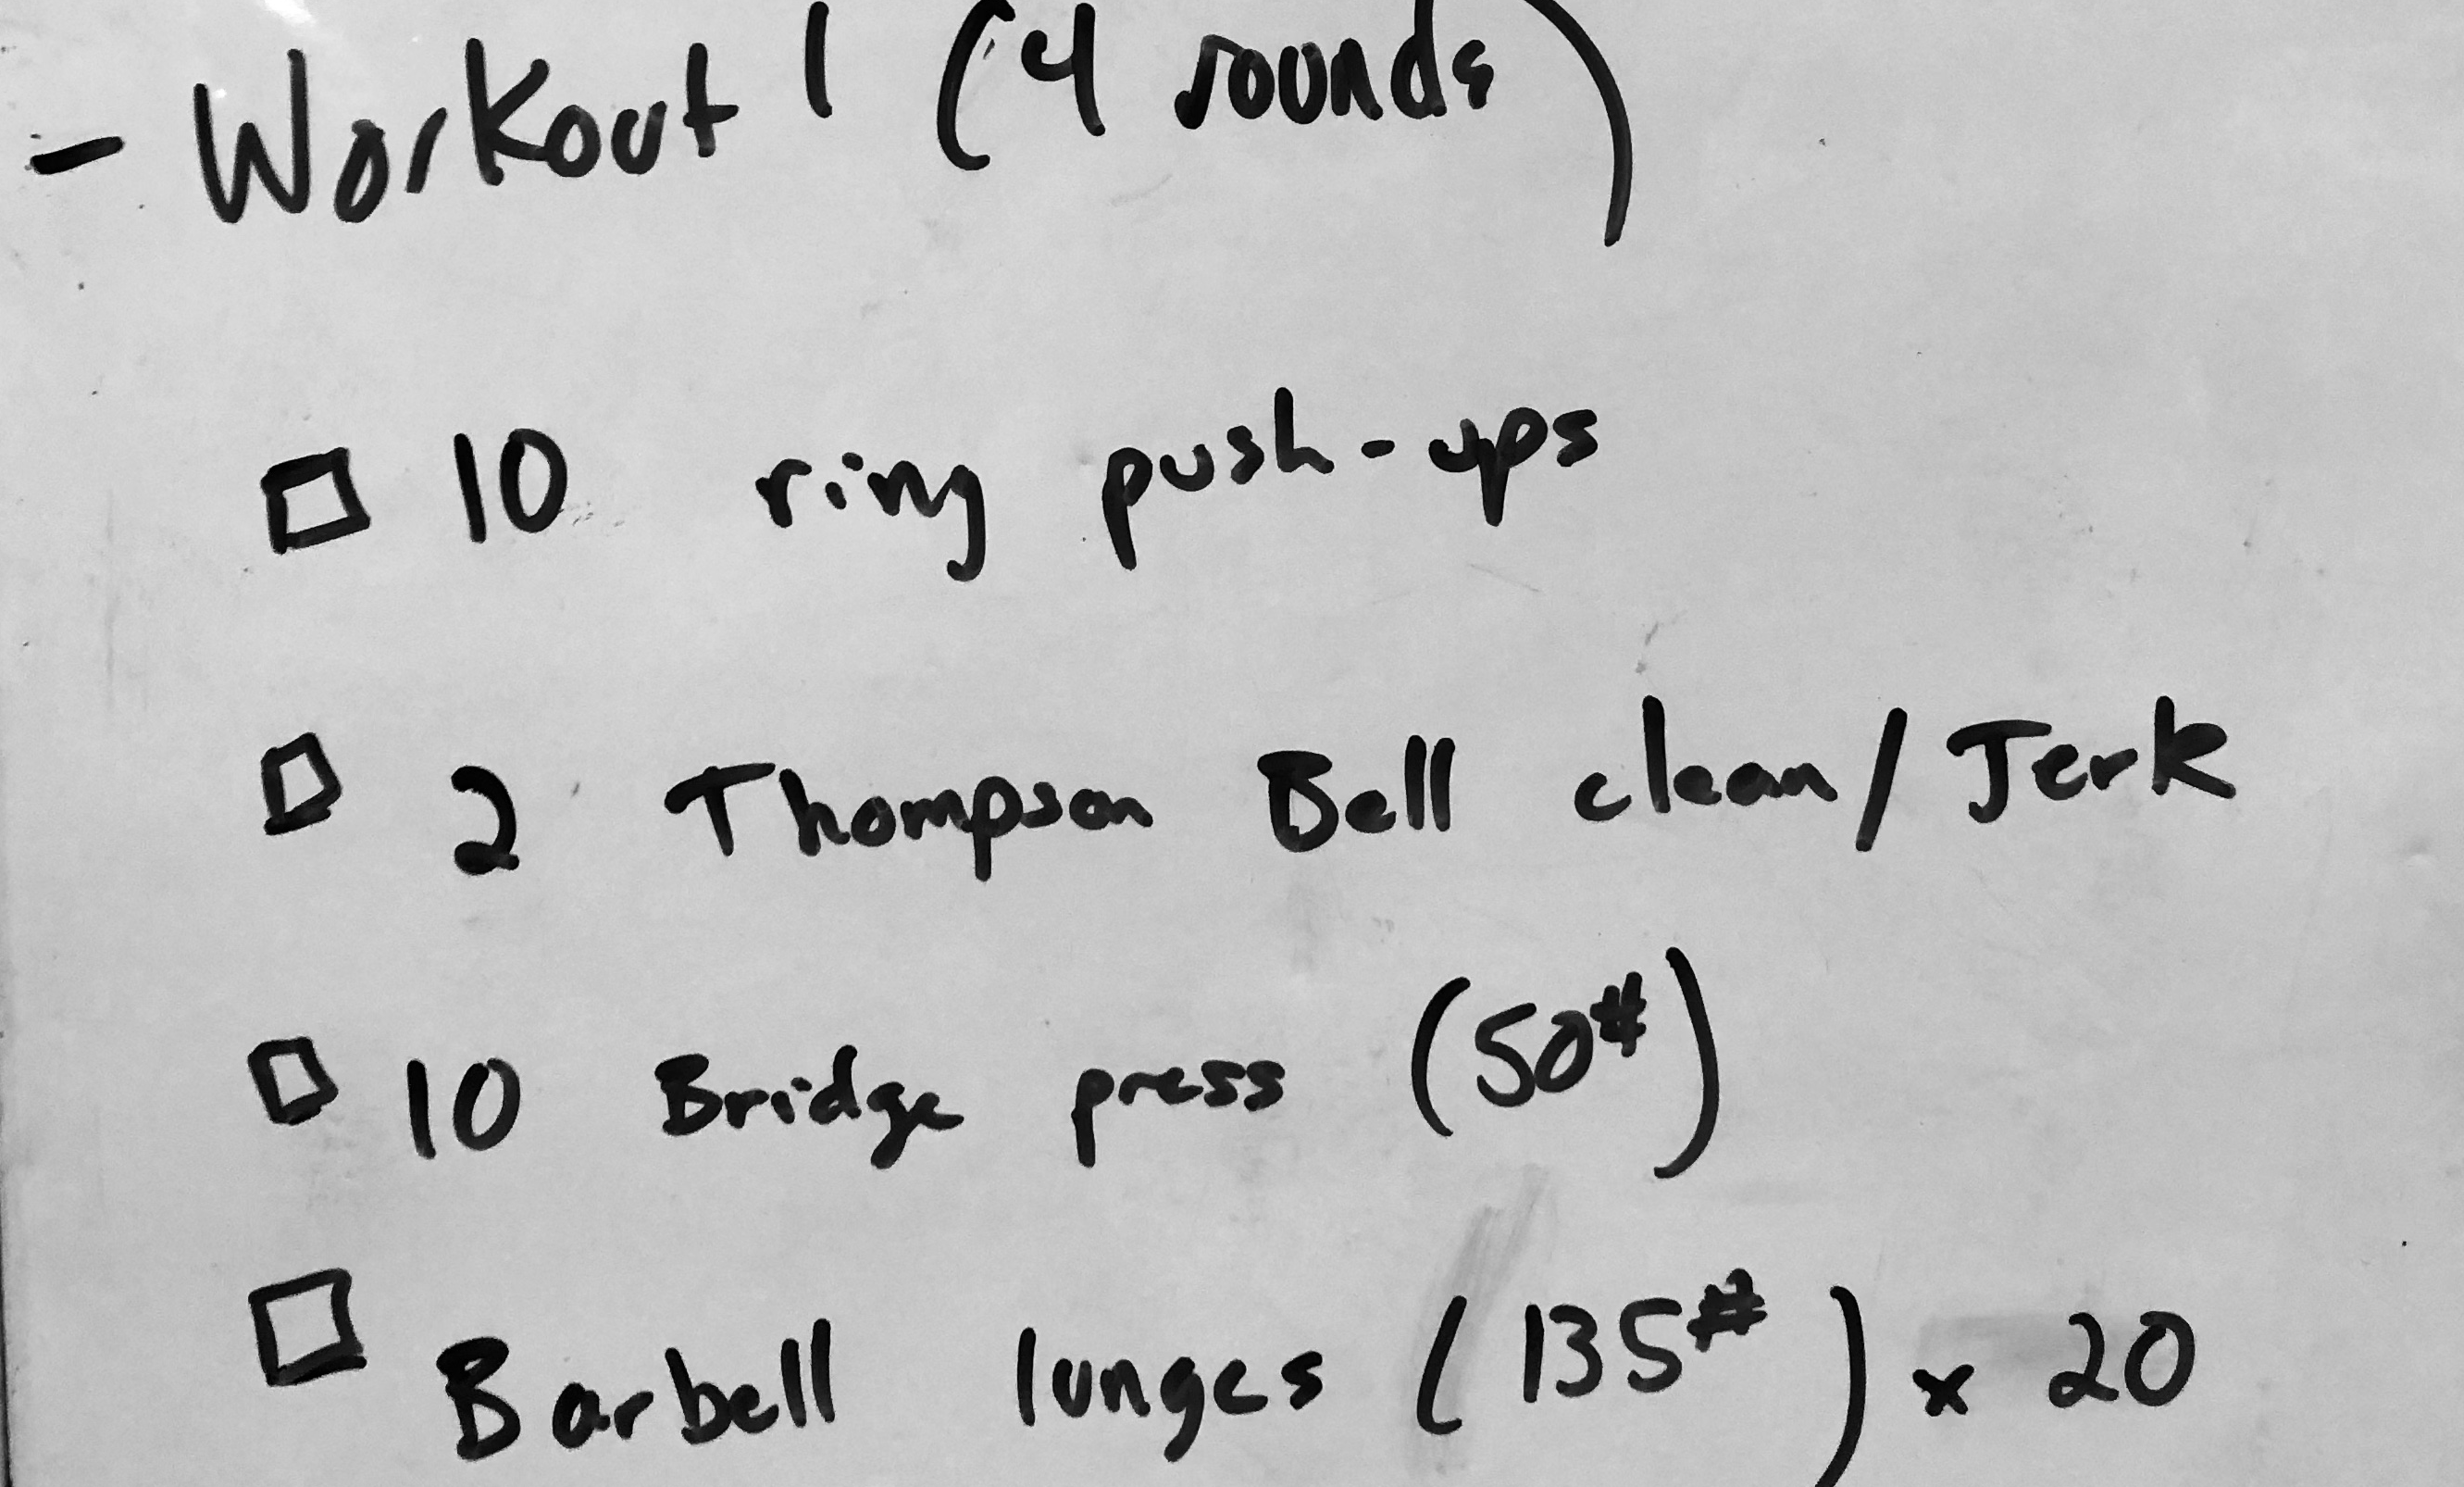 - Workout 1 (4 rounds)
□ 10 ring push-ups
□ 2 Thompson Bell clean/Jerk
□ 10 Bridge press (50#)
□ Barbell lunges (135#) x 20